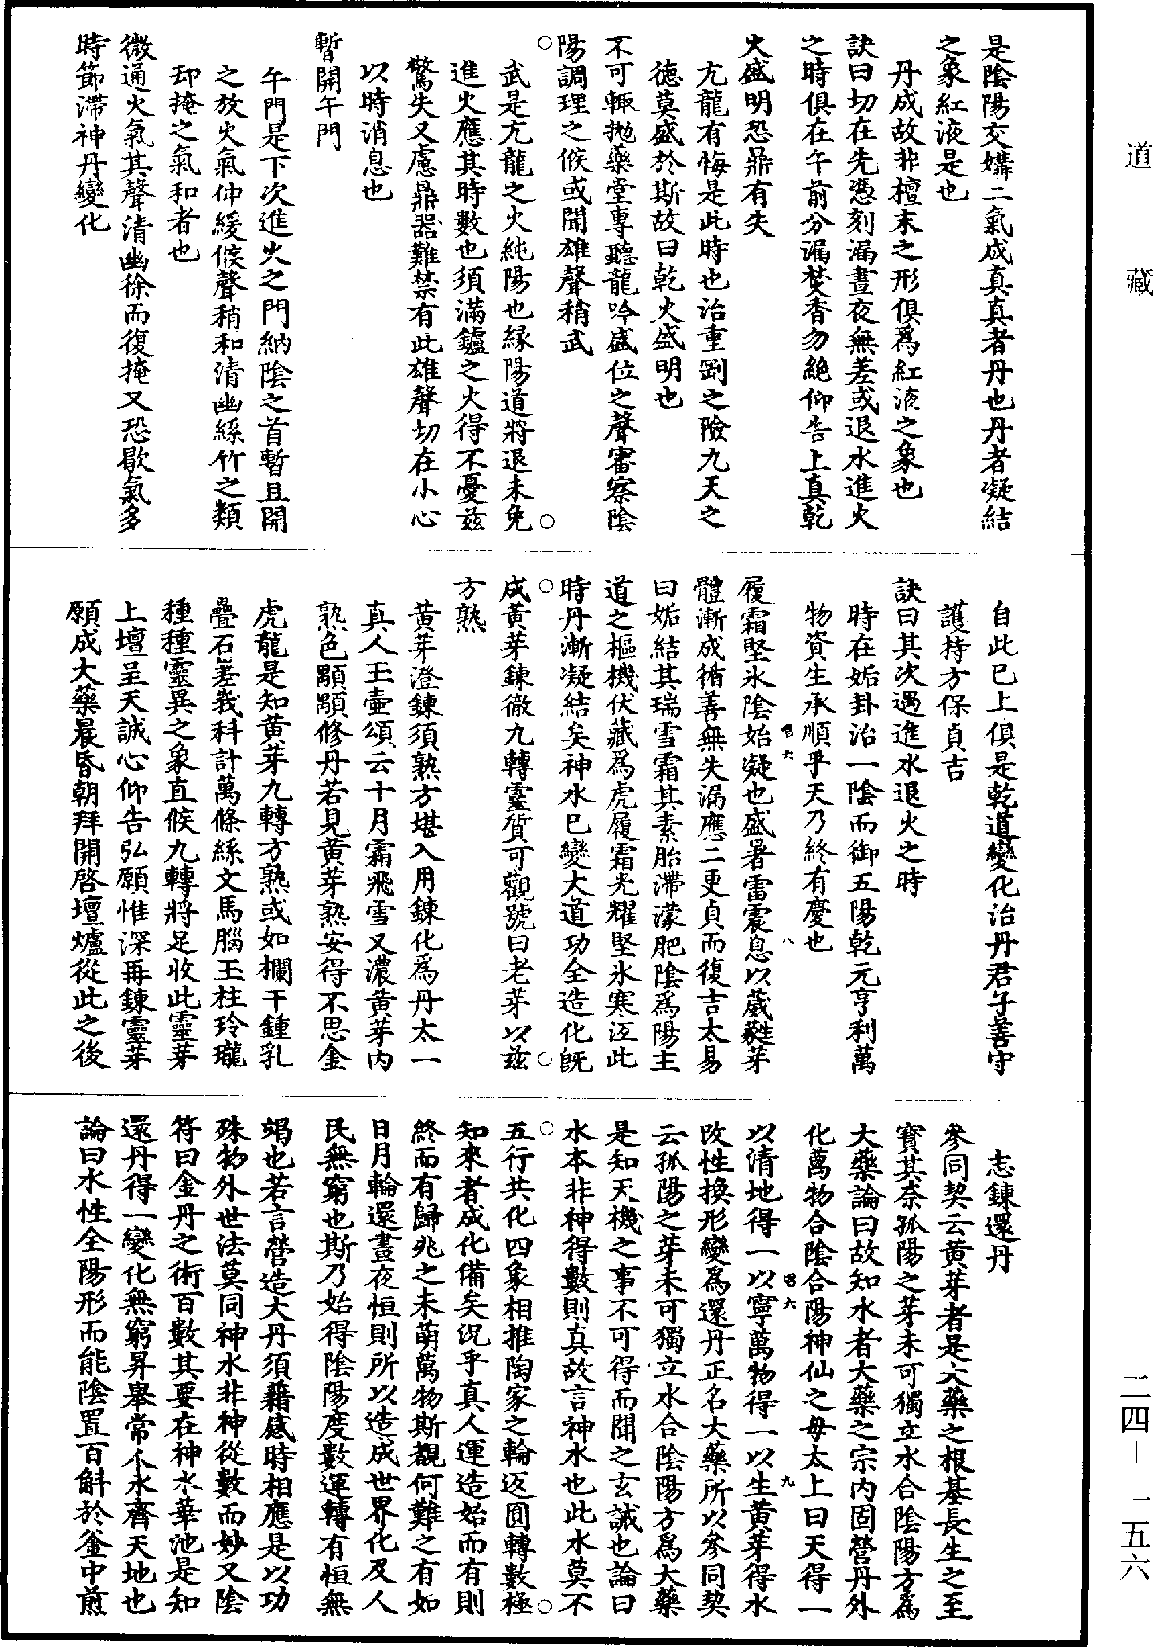 道藏
是陰陽交媾二氣成真真者丹也丹者凝結
之象紅液是也
丹成故非檀末之形俱爲紅液之象也
訣曰切在先憑刻漏晝夜無差或退水進火
之時俱在午前分漏焚香勿絶仰告上真乾
火盛明恐鼎有失
亢龍有悔是此時也治重剛之險九天之
德莫盛於斯故曰乾火盛明也
不可輒抛藥堂專聽龍吟盛位之聲審察陰
陽調理之候或聞雄聲稍武
○○
武是亢龍之火純陽也緣陽道將退未免
進火應其時數也須滿鑪之火得不憂茲
驚失又慮鼎器難禁有此雄聲切在小心
以時消息也
暫開午門
午門是下次進火之門納陰之首暫且開
之放火氣伸緩候聲稍和清幽絲竹之類
却掩之氣和者也
微通火氣其聲清幽徐而復掩又恐歇氣多
時節滯神丹變化
自此巳上俱是乾道變化治丹君子善守
護持方保貞吉
訣曰其次遇進水退火之時
時在姤卦治一陰而御五陽乾元亨利萬
物資生承順乎天乃終有慶也
履霜堅氷陰始凝也盛暑雷震息以葳蕤芽
體漸成循善無失漏應二更貞而復吉太易
曰姤結其瑞雪霜其素胎滯濛肥陰爲陽主
道之樞機伏藏爲虎履霜光耀堅氷寒沍此
時丹漸凝結矣神水巳變大道功全造化旣
成黄芽鍊徹九轉靈質可觀號曰老芽以茲
○○
方熟
黄芽澄鍊須熟方堪入用鍊化爲丹太一
真人玉壷頌云十月霜飛雪又濃黄芽内
熟色顒顒修丹若見黄芽熟安得不思金
虎龍是知黄芽九轉方熟或如欄干鍾乳
疊石差我科計萬條絲文馬腦玉柱玲瓏
種種靈異之象直候九轉將足收此靈芽
上壇呈天誠心仰告弘願惟深再鍊靈芽
願成大藥晨昏朝拜開啓壇爐從此之後
志鍊還丹
參同契云黄芽者是大藥之根基長生之至
寳其柰孤陽之芽未可獨立水合陰陽方爲
大藥論曰故知水者大藥之宗内固營丹外
化萬物合陰合陽神仙之母太上曰天得一
以清地得一以寧萬物得一以生黄芽得水
改性換形變爲還丹正名大藥所以參同契
云孤陽之芽未可獨立水合陰陽方爲大藥
是知天機之事不可得而聞之玄誠也論曰
水本非神得數則真故言神水也此水莫不
○○
五行共化四象相推陶家之輪返圓轉數極
知來者成化備矣況乎真人運造始而有則
終而有歸兆之未萌萬物斯覩何難之有如
日月輪還晝夜恒則所以造成世界化及人
民無窮也斯乃始得陰陽度數運轉有恒無
竭也若言營造大丹須藉感時相應是以功
殊物外世法莫同神水非神從數而妙又陰
符曰金丹之術百數其要在神水華池是知
還丹得一變化無窮昇舉常人水齊天地也
論曰水性全陽形而能陰置百斛於釜中煎
二四—一五六